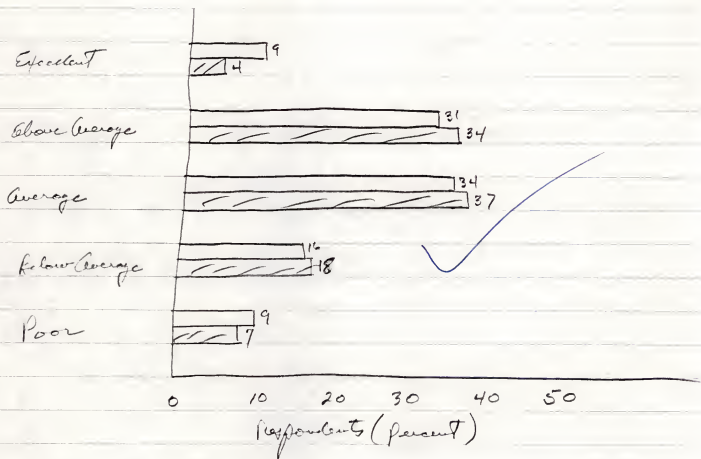 Excellent
9
4
Above Average
31
34
Average
34
37
Below Average
16
18
Poor
9
7
0 10 20 30 40 50
Respondents (Percent)